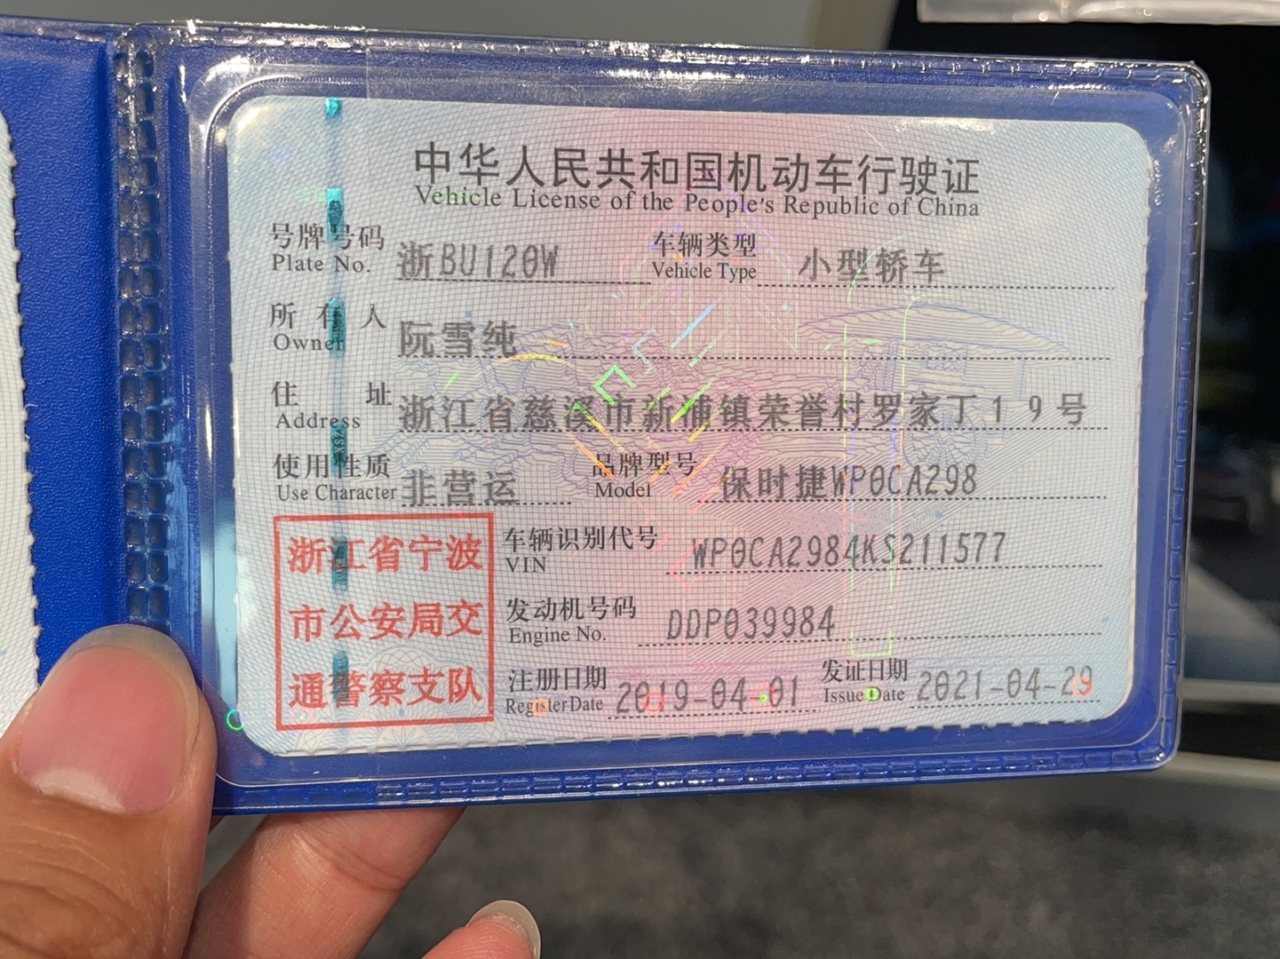 中华人民共和国机动车行驶证
Vehicle License of the People's Republic of China
号牌号码 浙BU120W 车辆类型 小型轿车
Plate No. Vehicle Type
所有人 阮雪纯
Owner
住址 浙江省慈溪市新浦镇荣誉村罗家丁19号
Address
使用性质 非营运 品牌型号 保时捷WP0CA298
Use Character Model
浙江省宁波
市公安局交
通警察支队
车辆识别代号 WP0CA2984KS211577
VIN
发动机号码 DDP039984
Engine No.
注册日期 2019-04-01 发证日期 2021-04-29
Register Date Issue Date